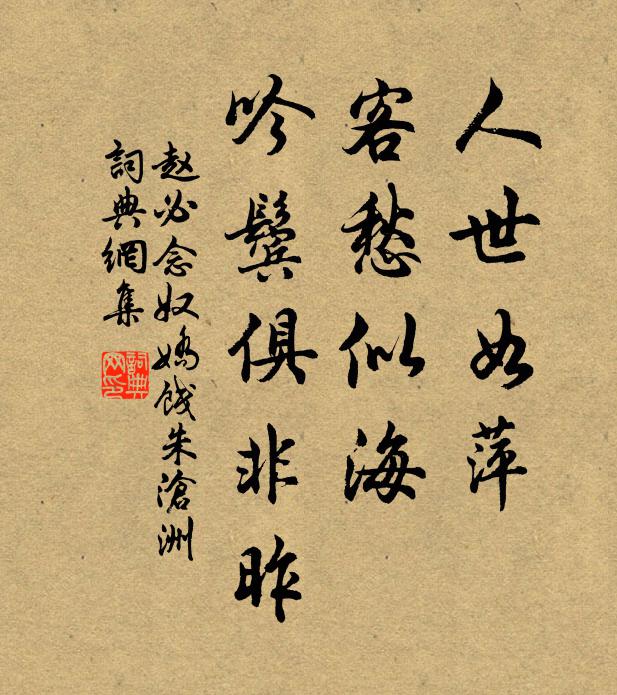 人世如萍
客愁似海
吟鬓俱非昨
赵必念奴娇饯朱滄洲
詞典網集
詞典网印